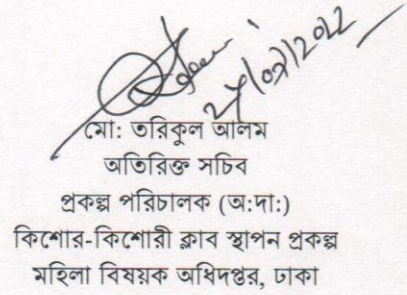 মো: তরিকুল আলম
অতিরিক্ত সচিব
প্রকল্প পরিচালক (অ:দা:)
কিশোর-কিশোরী ক্লাব স্থাপন প্রকল্প
মহিলা বিষয়ক অধিদপ্তর, ঢাকা